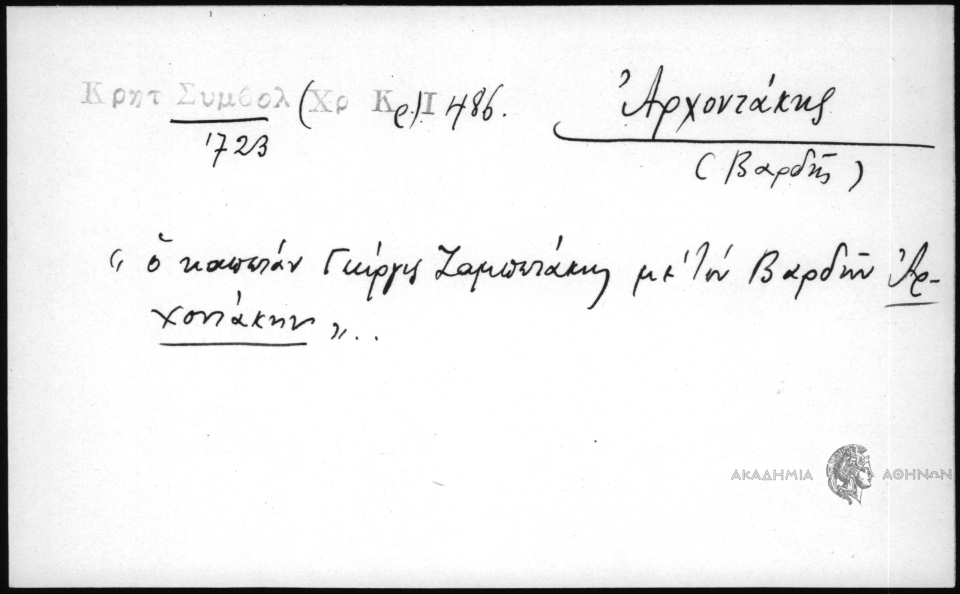 Κρητ Συμβολ (Χρ Κρ.) Ι 486.
1723
Ἀρχοντάκης
(Βαρδῆς)
"ὁ καπετάν Γιώργης Ζαμπετάκης μὲ τόν Βαρδῆν Ἀρ-
χοντάκην"...
ΑΚΑΔΗΜΙΑ ΑΘΗΝΩΝ